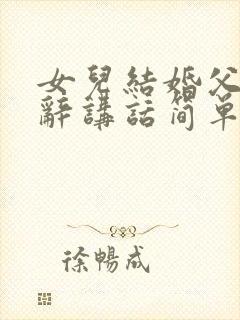 女兒結婚父
辭講話简单
徐暢成